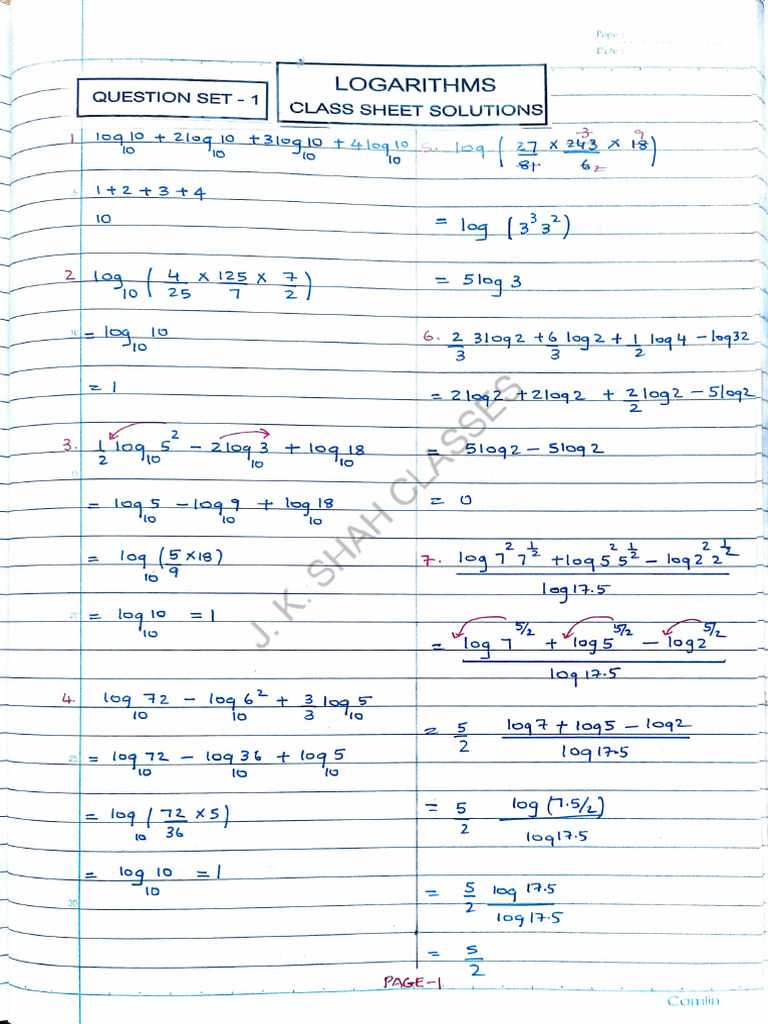 Page :
Date :
QUESTION SET - 1
LOGARITHMS
CLASS SHEET SOLUTIONS
1 log₁₀ 10 + 2 log₁₀ 10 + 3 log₁₀ 10 + 4 log₁₀ 10
1 + 2 + 3 + 4
10
2 log₁₀ (4/25 × 125/7 × 7/2)
= log₁₀ 10
= 1
3. 1/2 log₁₀ 5² − 2 log₁₀ 3 + log₁₀ 18
= log₁₀ 5 − log₁₀ 9 + log₁₀ 18
= log₁₀ (5/9 × 18)
= log₁₀ 10 = 1
4. log₁₀ 72 − log₁₀ 6² + 3/3 log₁₀ 5
= log₁₀ 72 − log₁₀ 36 + log₁₀ 5
= log₁₀ (72/36 × 5)
= log₁₀ 10 = 1
5. log (27/81 × 243/6 × 18) 3 9 2
= log (3³ 3²)
= 5 log 3
6. 2/3 3 log 2 + 6/3 log 2 + 1/2 log 4 − log 32
= 2 log 2 + 2 log 2 + 2/2 log 2 − 5 log 2
= 5 log 2 − 5 log 2
= 0
7. (log 7² 7^(1/2) + log 5² 5^(1/2) − log 2² 2^(1/2)) / log 17.5
= (log 7^(5/2) + log 5^(5/2) − log 2^(5/2)) / log 17.5
= 5/2 (log 7 + log 5 − log 2) / log 17.5
= 5/2 log (7.5/2) / log 17.5
= 5/2 log 17.5 / log 17.5
= 5/2
J. K. SHAH CLASSES
PAGE-1
Camlin